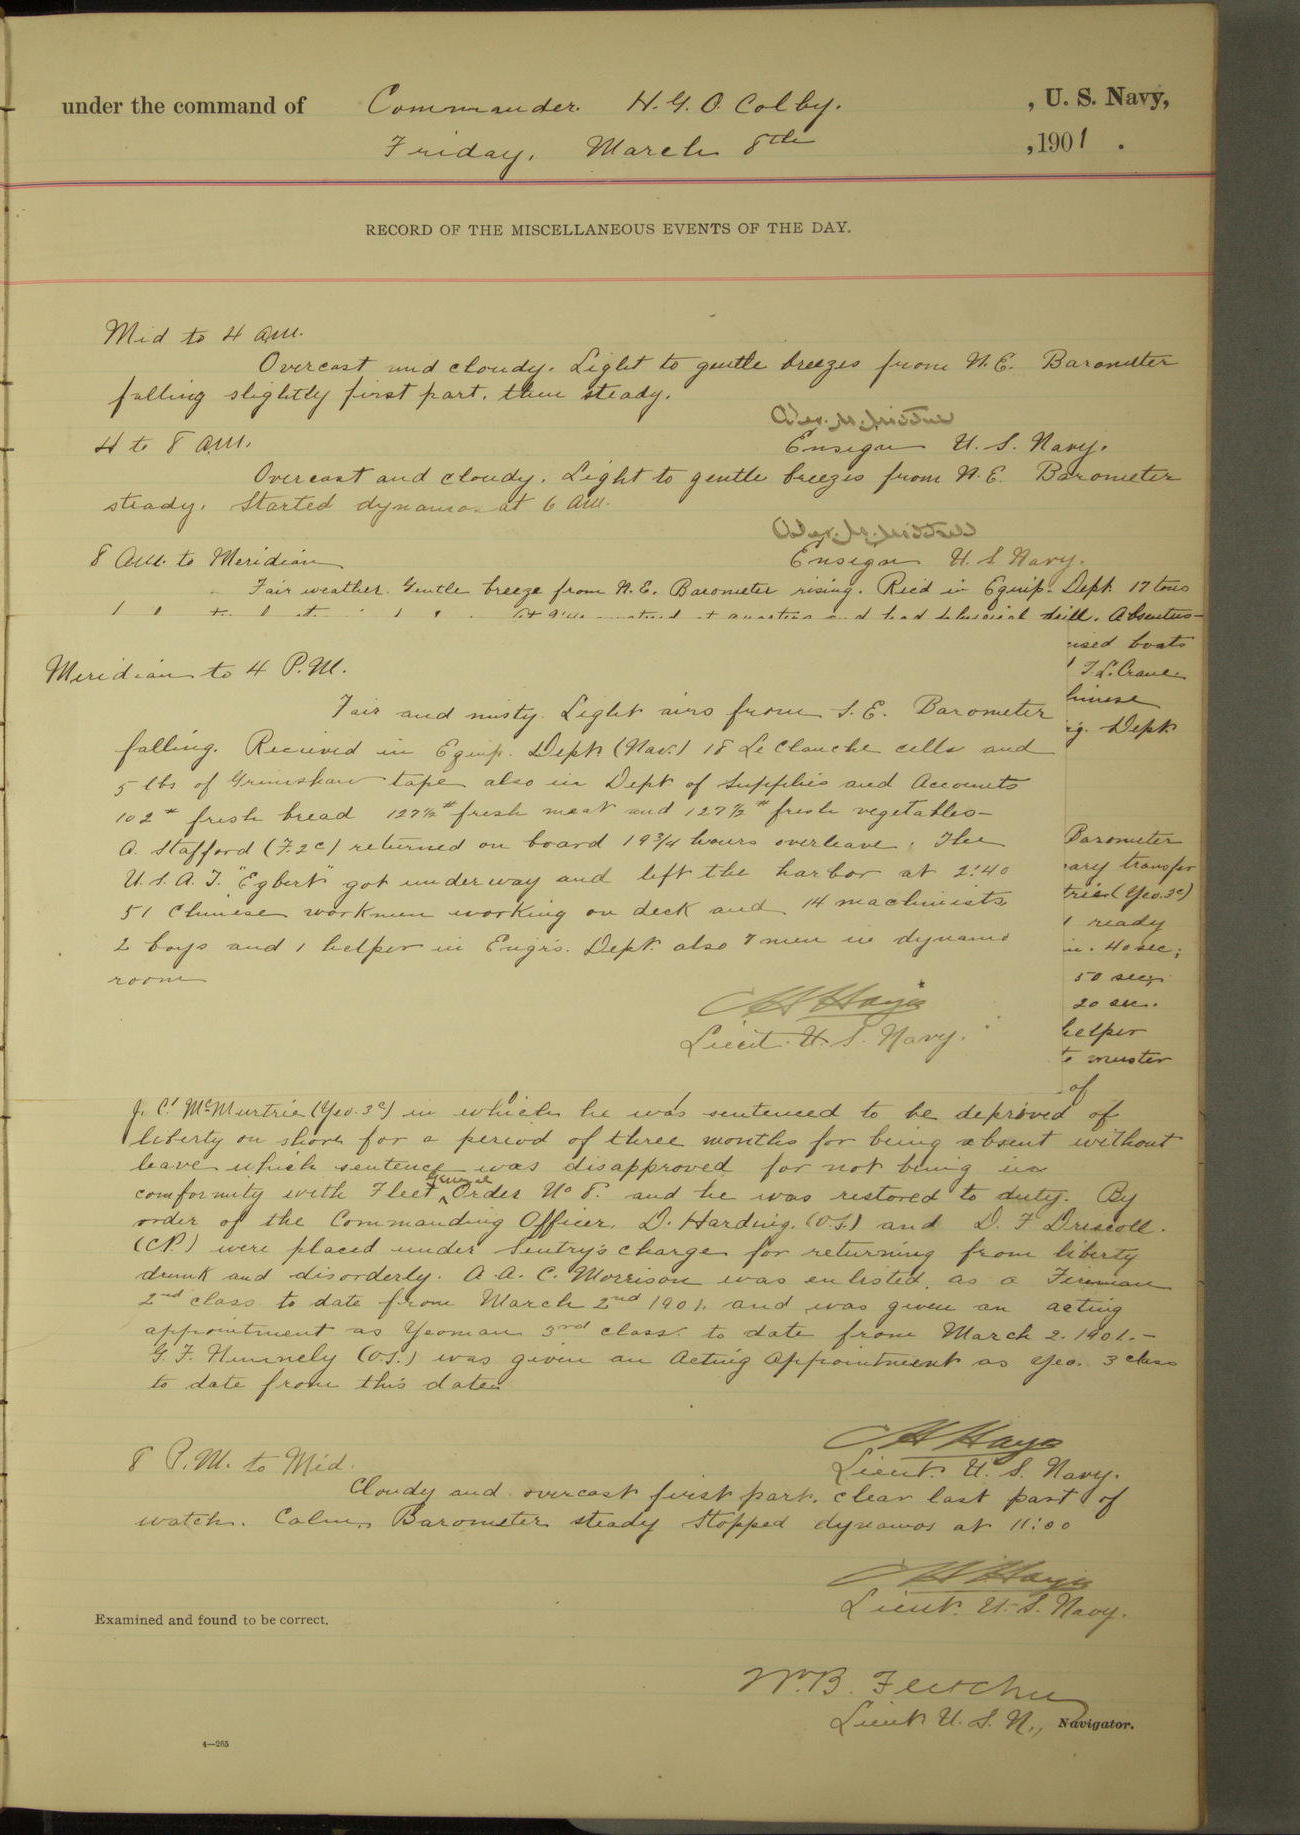 under the command of Commander. H. G. O. Colby. , U. S. Navy,
Friday, March 8th , 1901 .
RECORD OF THE MISCELLANEOUS EVENTS OF THE DAY.
Mid to 4 a.m.
Overcast and cloudy. Light to gentle breezes from N.E. Barometer
falling slightly first part, then steady.
4 to 8 a.m.
Ensign U. S. Navy.
Overcast and cloudy. Light to gentle breezes from N.E. Barometer
steady. Started dynamos at 6 a.m.
8 a.m. to Meridian
Ensign U. S Navy.
Fair weather. Gentle breeze from N.E. Barometer rising. Recd in Equip. Dept. 17 tons
at quarters and had physical drill. Absentees—
boats
Meridian to 4 P.M.
T. L. Crane
Chinese
Fair and misty. Light airs from S.E. Barometer
Dept
falling. Recieved in Equip. Dept (Nav.) 18 Le Clanche cells and
5 lbs of Grimshaw tape also in Dept of Supplies and Accounts
102# fresh bread 127½# fresh meat and 127½# fresh vegetables—
Barometer
A. Stafford (F.2c) returned on board 19¾ hours overleave. The
transfer
U.S.A.T. "Egbert" got underway and left the harbor at 2:40
(Yeo.3c)
51 Chinese workmen working on deck and 14 machinists
ready
2 boys and 1 helper in Engrs. Dept. also 7 men in dynamo
40 sec;
room
50 sec;
20 sec.
C H Hayes
helper
Lieut. U. S. Navy.
muster
of
J. C. McMurtrie (Yeo. 3c) in which he was sentenced to be deprived of
liberty on shore for a period of three months for being absent without
leave which sentence was disapproved for not being in
comformity with Fleet General Order No 8. and he was restored to duty. By
order of the Commanding Officer, D. Harding. (O.S.) and D. F Driscoll.
(CP.) were placed under Sentry's charge for returning from liberty
drunk and disorderly. A. A. C. Morrison was enlisted as a Fireman
2nd class to date from March 2nd 1901, and was given an acting
appointment as Yeoman 3rd class to date from March 2. 1901.—
G. F. (O.S.) was given an Acting Appointment as Yeo. 3 class
to date from this date.
C H Hayes
8 P.M. to Mid.
Lieut. U. S. Navy.
Cloudy and overcast first part, clear last part of
watch. Calm, Barometer steady Stopped dynamos at 11:00
C H Hayes
Lieut. U. S. Navy.
Examined and found to be correct.
W. B. Fletcher
Lieut U. S. N., Navigator.
4—265